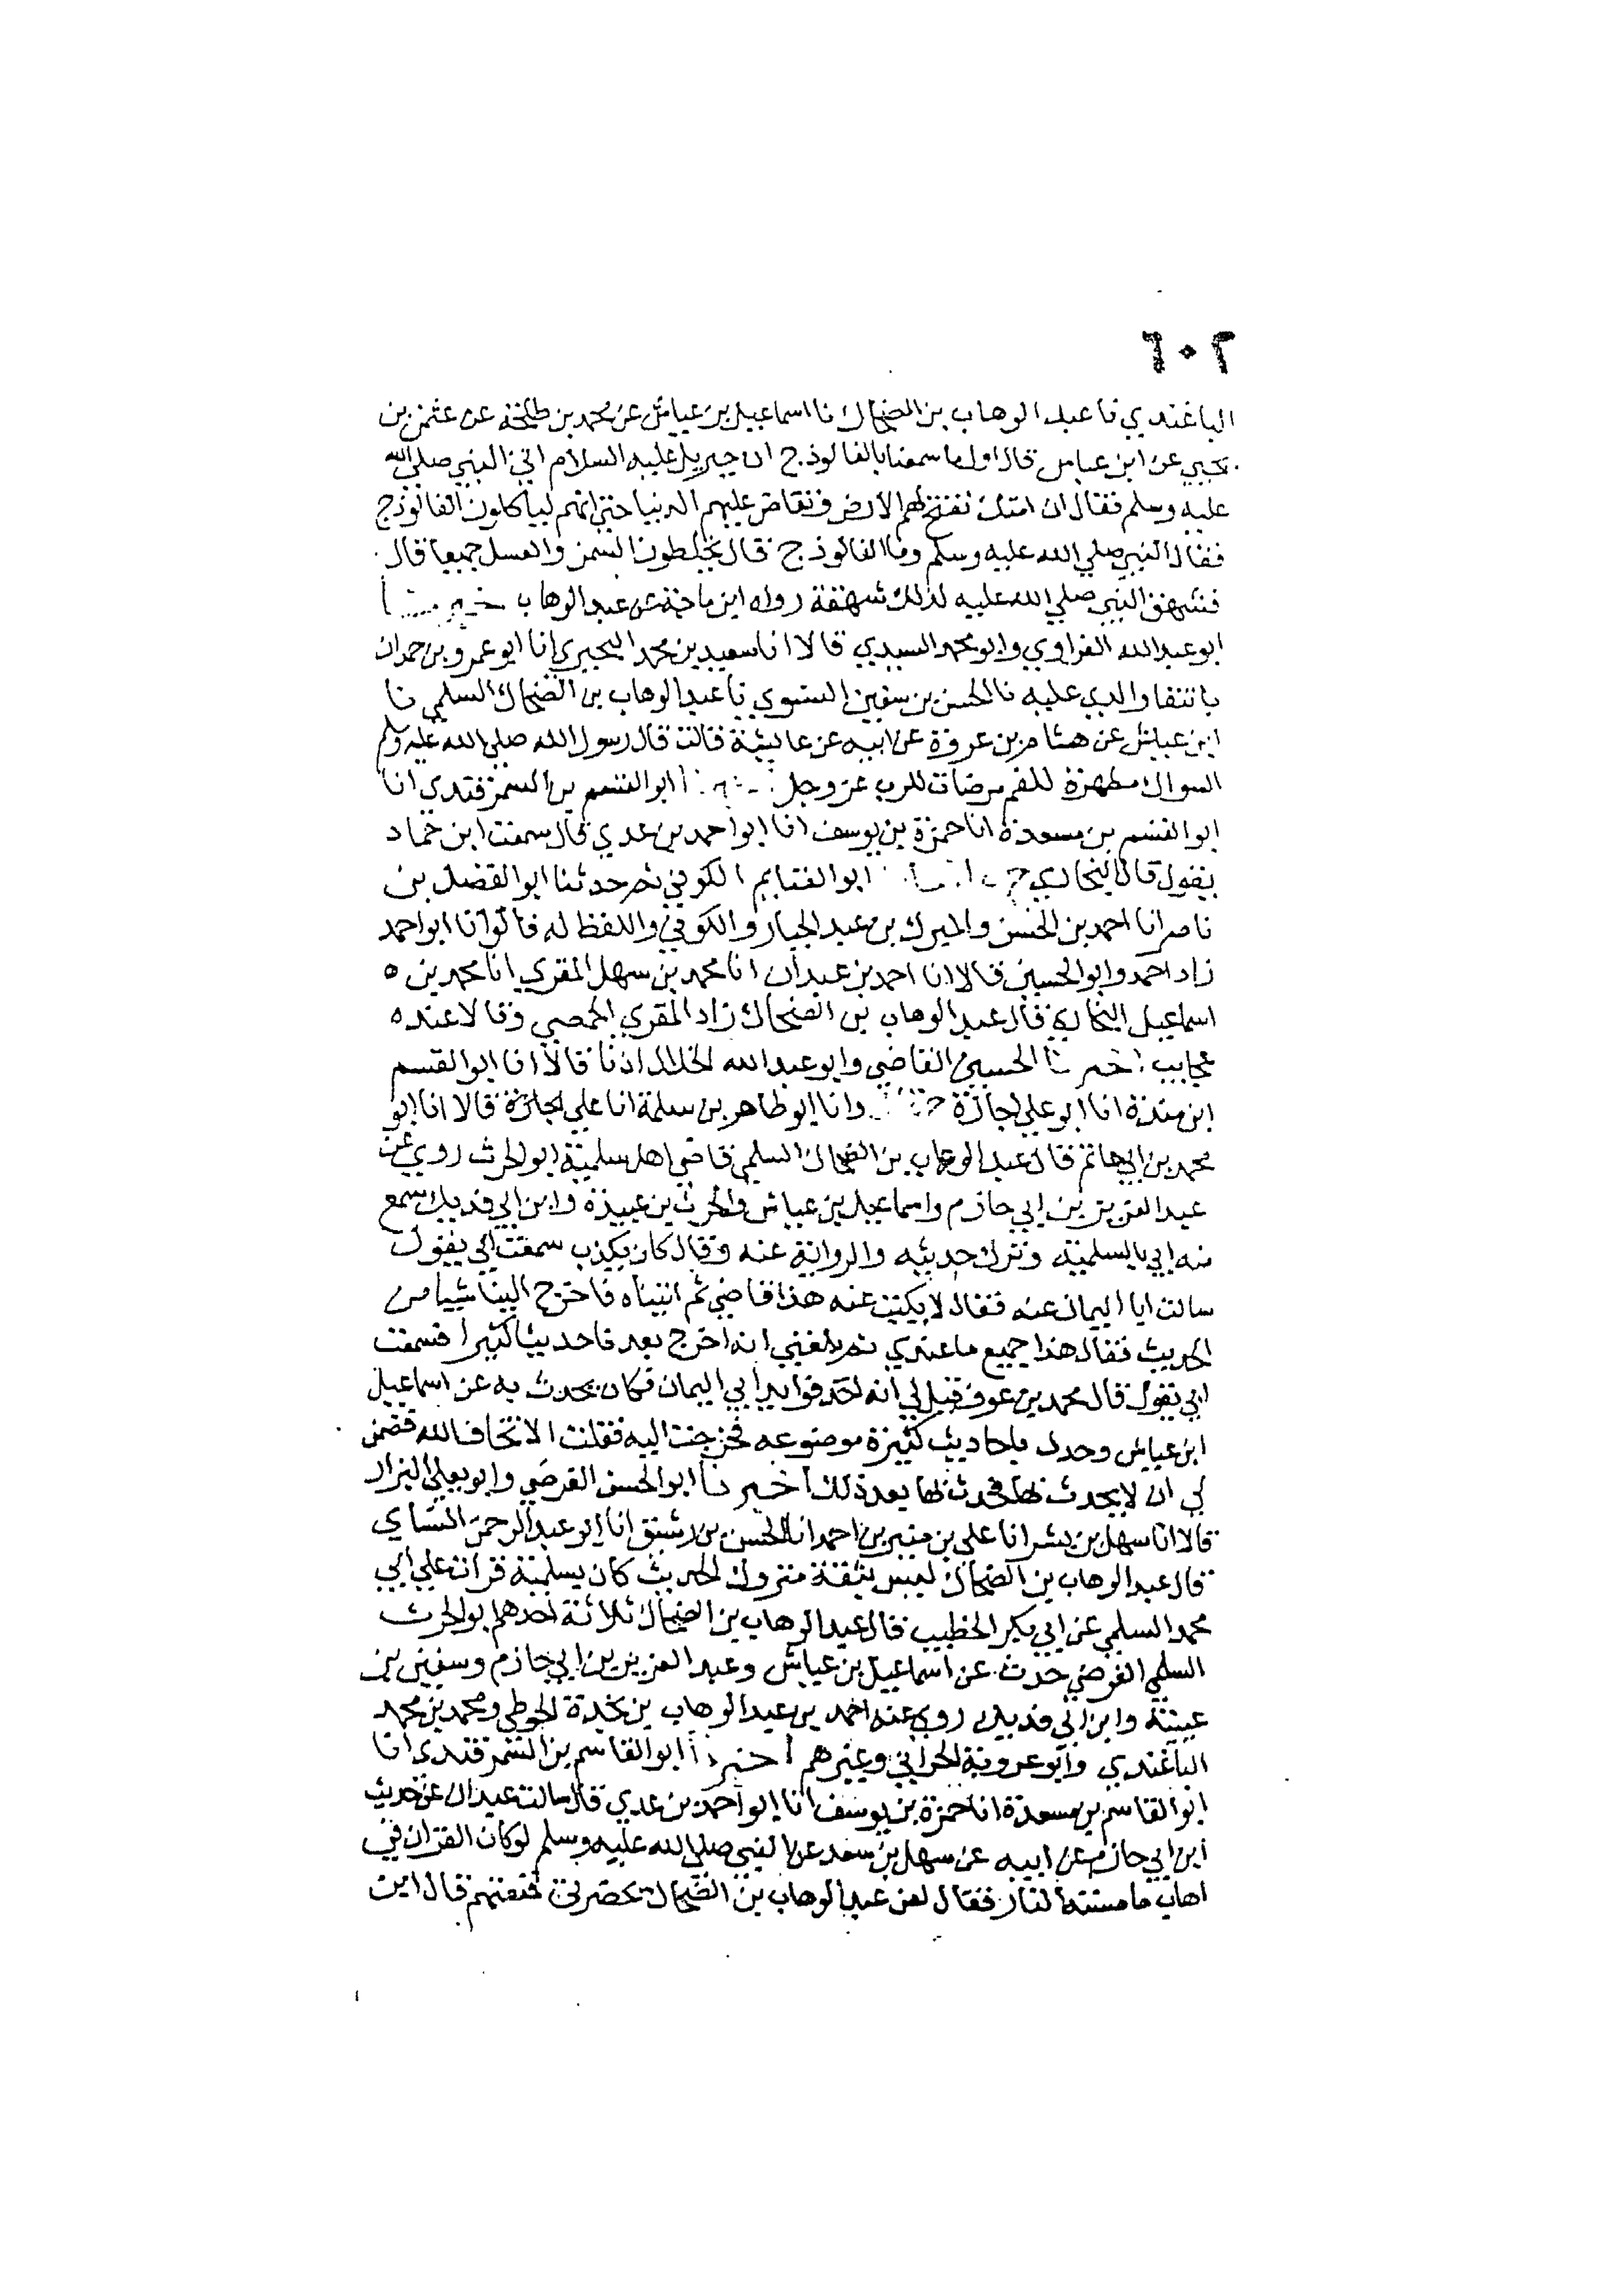 ٦٠٢
الباغندي نا عبد الوهاب بن الضحاك نا اسماعيل بن عياش عن محمد بن طلحة عن عثمن بن
يحيي عن ابن عباس قال اول ما سمعنا بالفالوذج ان جبريل عليه السلام اتي النبي صلي الله
عليه وسلم فقال ان امتك تفتح لهم الارض وتفاض عليهم الدنيا حتي انهم لياكلون الفالوذج
فقال النبي صلي الله عليه وسلم وما الفالوذج قال يخلطون السمن والعسل جميعا قال
فشهق النبي صلي الله عليه لذلك شهقة رواه ابن ماجة عن عبد الوهاب اخبرنا
ابو عبد الله الفراوي وابو محمد السيدي قالا انا سعيد بن محمد البحيري انا ابو عمرو بن حمدان
بانتقا والدي عليه نا الحسن بن سفين النسوي نا عبد الوهاب بن الضحاك السلمي نا
ابن عياش عن هشام بن عروة عن ابيه عن عايشة قالت قال رسول الله صلي الله عليه وسلم
السواك مطهرة للفم مرضات للرب عز وجل ابو القسم بن السمرقندي انا
ابو القسم بن مسعدة انا حمزة بن يوسف انا ابو احمد بن عدي قال سمعت ابن حماد
يقول قال البخاري ح ابو الغنايم الكوفي ثم حدثنا ابو الفضل بن
ناصر انا احمد بن الحسن والمبرك بن عبد الجبار والكوفي واللفظ له قالوا انا ابو احمد
زاد احمد وابو الحسين قالا انا احمد بن عبدان انا محمد بن سهل المقري انا محمد بن
اسماعيل البخاري قال عبد الوهاب بن الضحاك زاد المقري الحمصي وقالا عنده
عجايب اخبرنا الحسين القاضي وابو عبد الله الخلال اذنا قالا انا ابو القسم
ابن مندة انا ابو علي اجازة ح وانا ابو طاهر بن سلمة انا علي اجازة قالا انا ابو
محمد بن ابي حاتم قال عبد الوهاب بن الضحاك السلمي قاضي اهل سلمية ابو الحرث روي عن
عبد العزيز بن ابي حازم واسماعيل بن عياش والحرث بن عبيدة وابن ابي فديك سمع
منه ابي بالسلمية وترك حديثه والرواية عنه وقال كان يكذب سمعت ابي يقول
سالت ابا اليمان عنه فقال لا يكتب عنه هذا قاضي ثم اتيناه فاخرج الينا شيا من
الحديث فقال هذا جميع ما عندي ثم بلغني انه اخرج بعدنا حديثا كثيرا فسمعت
ابي يقول قال محمد بن عوف قيل لي انه اخذ فوايد ابي اليمان فكان يحدث به عن اسماعيل
ابن عياش وحدث باحاديث كثيرة موضوعه فخرجت اليه فقلت الا تخاف الله فضمن
لي ان لا يحدث بها فحدث بها بعد ذلك اخبرنا ابو الحسن الفرضي وابو يعلي البزار
قالا انا سهل بن بشر انا علي بن منير بن احمد انا الحسن بن رشيق انا ابو عبد الرحمن النساي
قال عبد الوهاب بن الضحاك ليس بثقة متروك الحديث كان بسلمية قرات علي ابي
محمد السلمي عن ابي بكر الخطيب قال عبد الوهاب بن الضحاك ثلاثة احدهم ابو الحرث
السلمي الفرضي حدث عن اسماعيل بن عياش وعبد العزيز بن ابي حازم وسفين بن
عيينة وابن ابي فديك روي عنه احمد بن عبد الوهاب بن نجدة الحوطي ومحمد بن محمد
الباغندي وابو عروبة الحراني وغيرهم اخبرنا ابو القاسم بن السمرقندي انا
ابو القاسم بن مسعدة انا حمزة بن يوسف انا ابو احمد بن عدي قال سالت عبدان عن حديث
ابن ابي حازم عن ابيه عن سهل بن سعد عن النبي صلي الله عليه وسلم لو كان القران في
اهاب ما مسته النار فقال لقن عبد الوهاب بن الضحاك بحضرتي فمنعتهم قال ابن